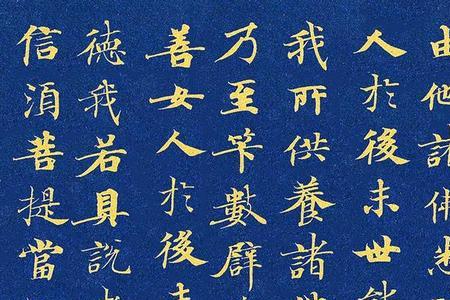 由他諸佛悉
人於後末世能
我所供養諸
乃至笇數譬
善女人於後末
徳我若具說
信須菩提當